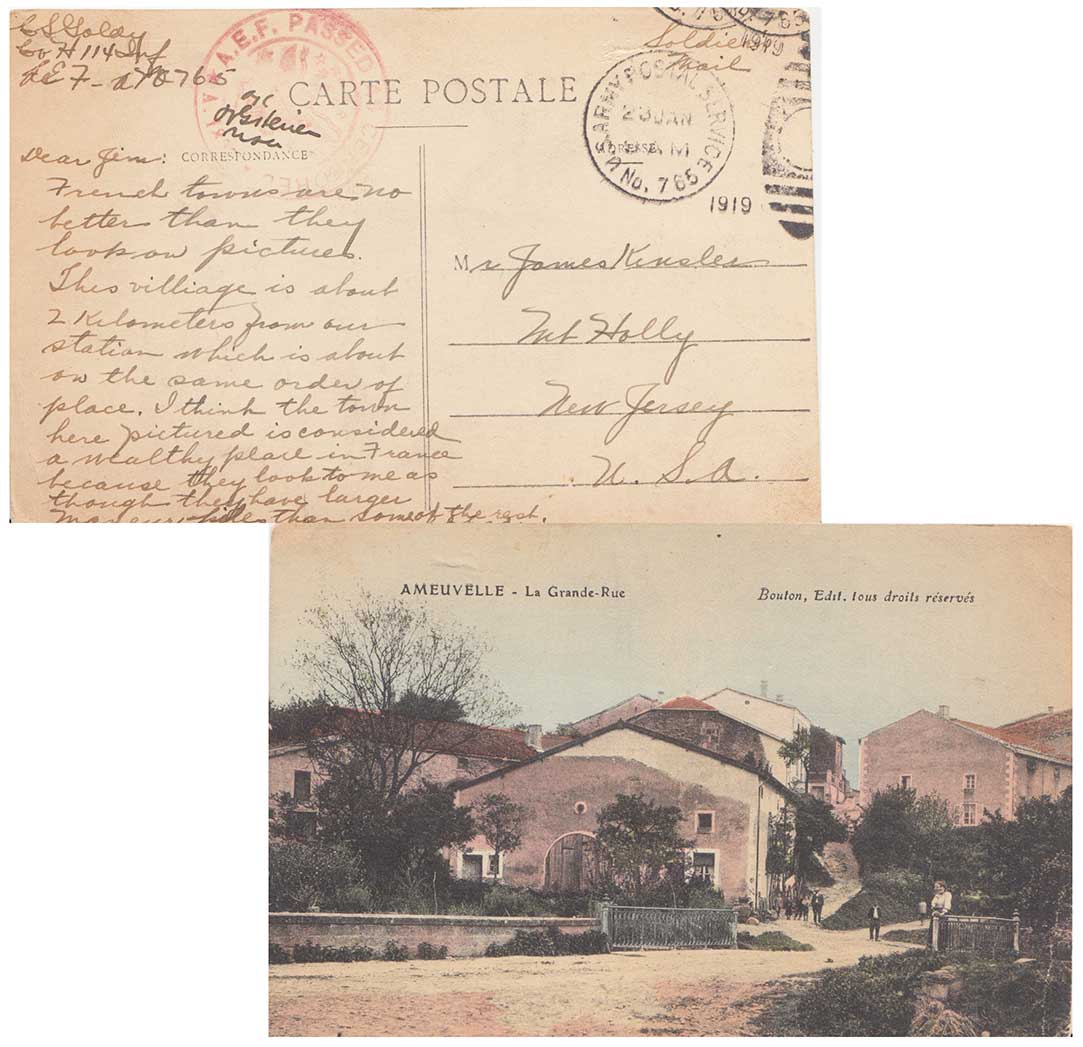 C S Goldy
Co H 114 Inf
AEF - APO 765
Soldier's
Mail
1919
A.E.F. PASSED
CARTE POSTALE
U.S. ARMY POSTAL SERVICE
23 JAN
AM
No. 765
1919
CORRESPONDANCE
ADRESSE
Dear Jim:
French towns are no
better than they
look on pictures.
This villiage is about
2 Kilometers from our
station which is about
on the same order of
place. I think the town
here pictured is considered
a wealthy place in France
because they look to me as
though they have larger
Maneure piles than some of the rest.
Mr James Kinsler
Mt Holly
New Jersey
U. S. A.
AMEUVELLE - La Grande-Rue
Bouton, Edit. tous droits réservés